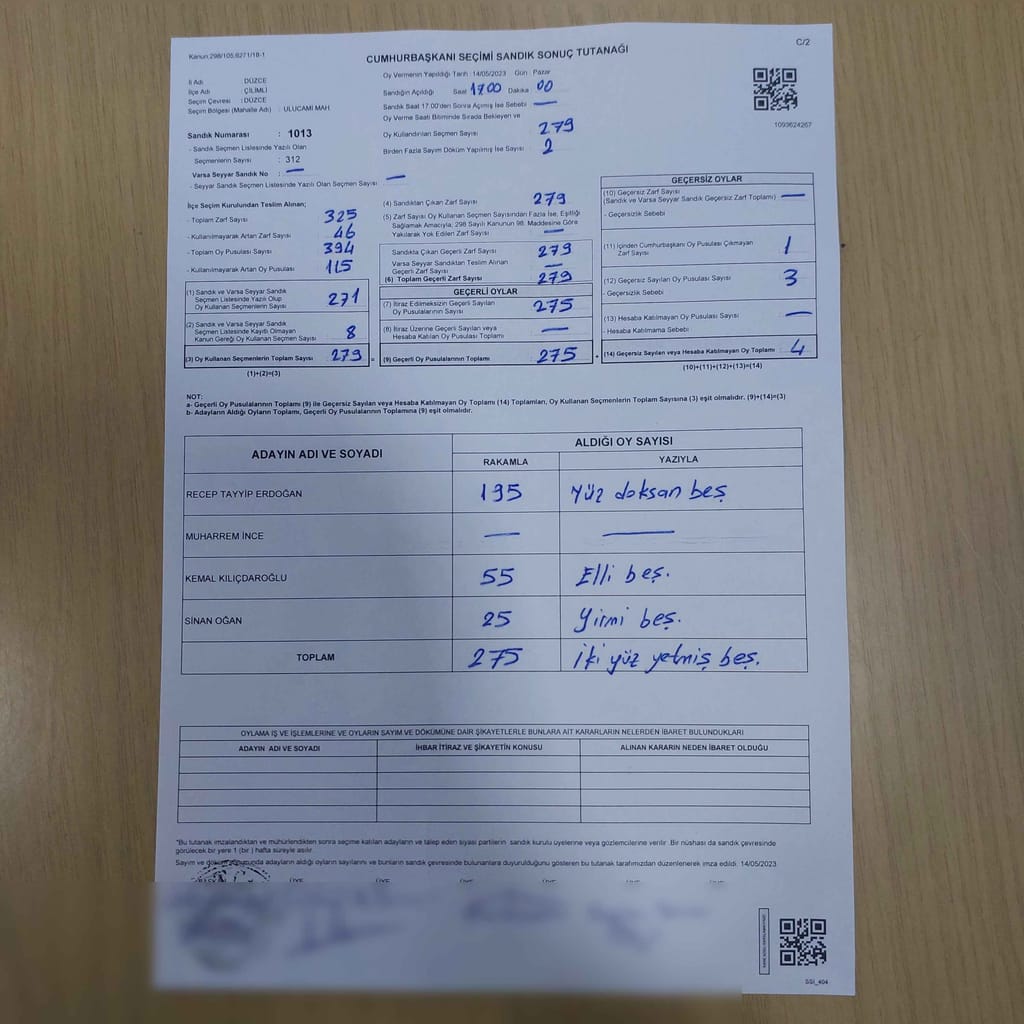 Kanun:298/105,6271/18-1
C/2
CUMHURBAŞKANI SEÇİMİ SANDIK SONUÇ TUTANAĞI
İl Adı : DÜZCE
İlçe Adı : ÇİLİMLİ
Seçim Çevresi : DÜZCE
Seçim Bölgesi (Mahalle Adı) : ULUCAMİ MAH.
Oy Vermenin Yapıldığı Tarih :14/05/2023 Gün : Pazar
Sandığın Açıldığı Saat 17 00 Dakika 00
Sandık Saat 17:00'den Sonra Açımış İse Sebebi —
Oy Verme Saati Bitiminde Sırada Bekleyen ve
Oy Kullandırılan Seçmen Sayısı 279
Birden Fazla Sayım Döküm Yapılmış İse Sayısı 2
1093624267
Sandık Numarası : 1013
- Sandık Seçmen Listesinde Yazılı Olan
Seçmenlerin Sayısı : 312
Varsa Seyyar Sandık No : —
- Seyyar Sandık Seçmen Listesinde Yazılı Olan Seçmen Sayısı : —
İlçe Seçim Kurulundan Teslim Alınan;
- Toplam Zarf Sayısı 325
- Kullanılmayarak Artan Zarf Sayısı 46
- Toplam Oy Pusulası Sayısı 394
- Kullanılmayarak Artan Oy Pusulası 115
(1) Sandık ve Varsa Seyyar Sandık
Seçmen Listesinde Yazılı Olup
Oy Kullanan Seçmenlerin Sayısı 271
(2) Sandık ve Varsa Seyyar Sandık
Seçmen Listesinde Kayıtlı Olmayan
Kanun Gereği Oy Kullanan Seçmen Sayısı 8
(3) Oy Kullanan Seçmenlerin Toplam Sayısı 279 =
(1)+(2)=(3)
(4) Sandıktan Çıkan Zarf Sayısı 279
(5) Zarf Sayısı Oy Kullanan Seçmen Sayısından Fazla İse, Eşitliği
Sağlamak Amacıyla; 298 Sayılı Kanunun 98. Maddesine Göre
Yakılarak Yok Edilen Zarf Sayısı —
Sandıkta Çıkan Geçerli Zarf Sayısı 279
Varsa Seyyar Sandıktan Teslim Alınan
Geçerli Zarf Sayısı —
(6) Toplam Geçerli Zarf Sayısı 279
GEÇERLİ OYLAR
(7) İtiraz Edilmeksizin Geçerli Sayılan
Oy Pusulalarının Sayısı 275
(8) İtiraz Üzerine Geçerli Sayılan veya
Hesaba Katılan Oy Pusulası Toplamı —
(9) Geçerli Oy Pusulalarının Toplamı 275 +
GEÇERSİZ OYLAR
(10) Geçersiz Zarf Sayısı
(Sandık ve Varsa Seyyar Sandık Geçersiz Zarf Toplamı) —
- Geçersizlik Sebebi
(11) İçinden Cumhurbaşkanı Oy Pusulası Çıkmayan
Zarf Sayısı 1
(12) Geçersiz Sayılan Oy Pusulası Sayısı 3
- Geçersizlik Sebebi
(13) Hesaba Katılmayan Oy Pusulası Sayısı —
- Hesaba Katılmama Sebebi
(14) Geçersiz Sayılan veya Hesaba Katılmayan Oy Toplamı 4
(10)+(11)+(12)+(13)=(14)
NOT:
a- Geçerli Oy Pusulalarının Toplamı (9) ile Geçersiz Sayılan veya Hesaba Katılmayan Oy Toplamı (14) Toplamları, Oy Kullanan Seçmenlerin Toplam Sayısına (3) eşit olmalıdır. (9)+(14)=(3)
b- Adayların Aldığı Oyların Toplamı, Geçerli Oy Pusulalarının Toplamına (9) eşit olmalıdır.
ADAYIN ADI VE SOYADI ALDIĞI OY SAYISI
RAKAMLA YAZIYLA
RECEP TAYYİP ERDOĞAN 195 Yüz doksan beş
MUHARREM İNCE — —
KEMAL KILIÇDAROĞLU 55 Elli beş.
SİNAN OĞAN 25 Yirmi beş.
TOPLAM 275 İki yüz yetmiş beş.
OYLAMA İŞ VE İŞLEMLERİNE VE OYLARIN SAYIM VE DÖKÜMÜNE DAİR ŞİKAYETLERLE BUNLARA AİT KARARLARIN NELERDEN İBARET BULUNDUKLARI
ADAYIN ADI VE SOYADI İHBAR İTİRAZ VE ŞİKAYETİN KONUSU ALINAN KARARIN NEDEN İBARET OLDUĞU
"Bu tutanak imzalandıktan ve mühürlendikten sonra seçime katılan adayların ve talep eden siyasi partilerin sandık kurulu üyelerine veya gözlemcilerine verilir. Bir nüshası da sandık çevresinde
görülecek bir yere 1 (bir ) hafta süreyle asılır.
Sayım ve döküm sonucunda adayların aldığı oyların sayılarını ve bunların sandık çevresinde bulunanlara duyurulduğunu gösteren bu tutanak tarafımızdan düzenlenerek imza edildi. 14/05/2023
ÜYE ÜYE ÜYE ÜYE ÜYE ÜYE
SSİ_404